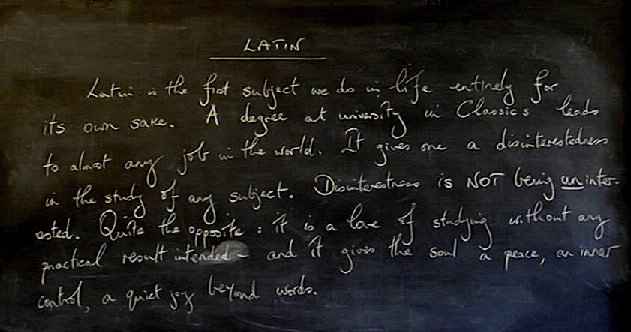 LATIN
Latin is the first subject we do in life entirely for
its own sake. A degree at university in Classics leads
to almost any job in the world. It gives one a disinterestedness
in the study of any subject. Disinterestness is NOT being uninter-
ested. Quite the opposite: it is a love of studying without any
practical result intended - and it gives the soul a peace, an inner
control, a quiet joy beyond words.